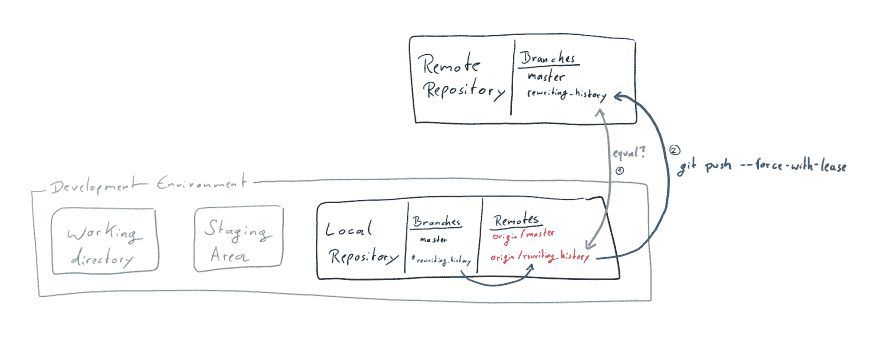 Remote
Repository
Branches
master
rewriting_history
equal?
①
②
git push --force-with-lease
Development Environment
Working
directory
Staging
Area
Local
Repository
Branches
master
*rewriting_history
Remotes
origin/master
origin/rewriting_history